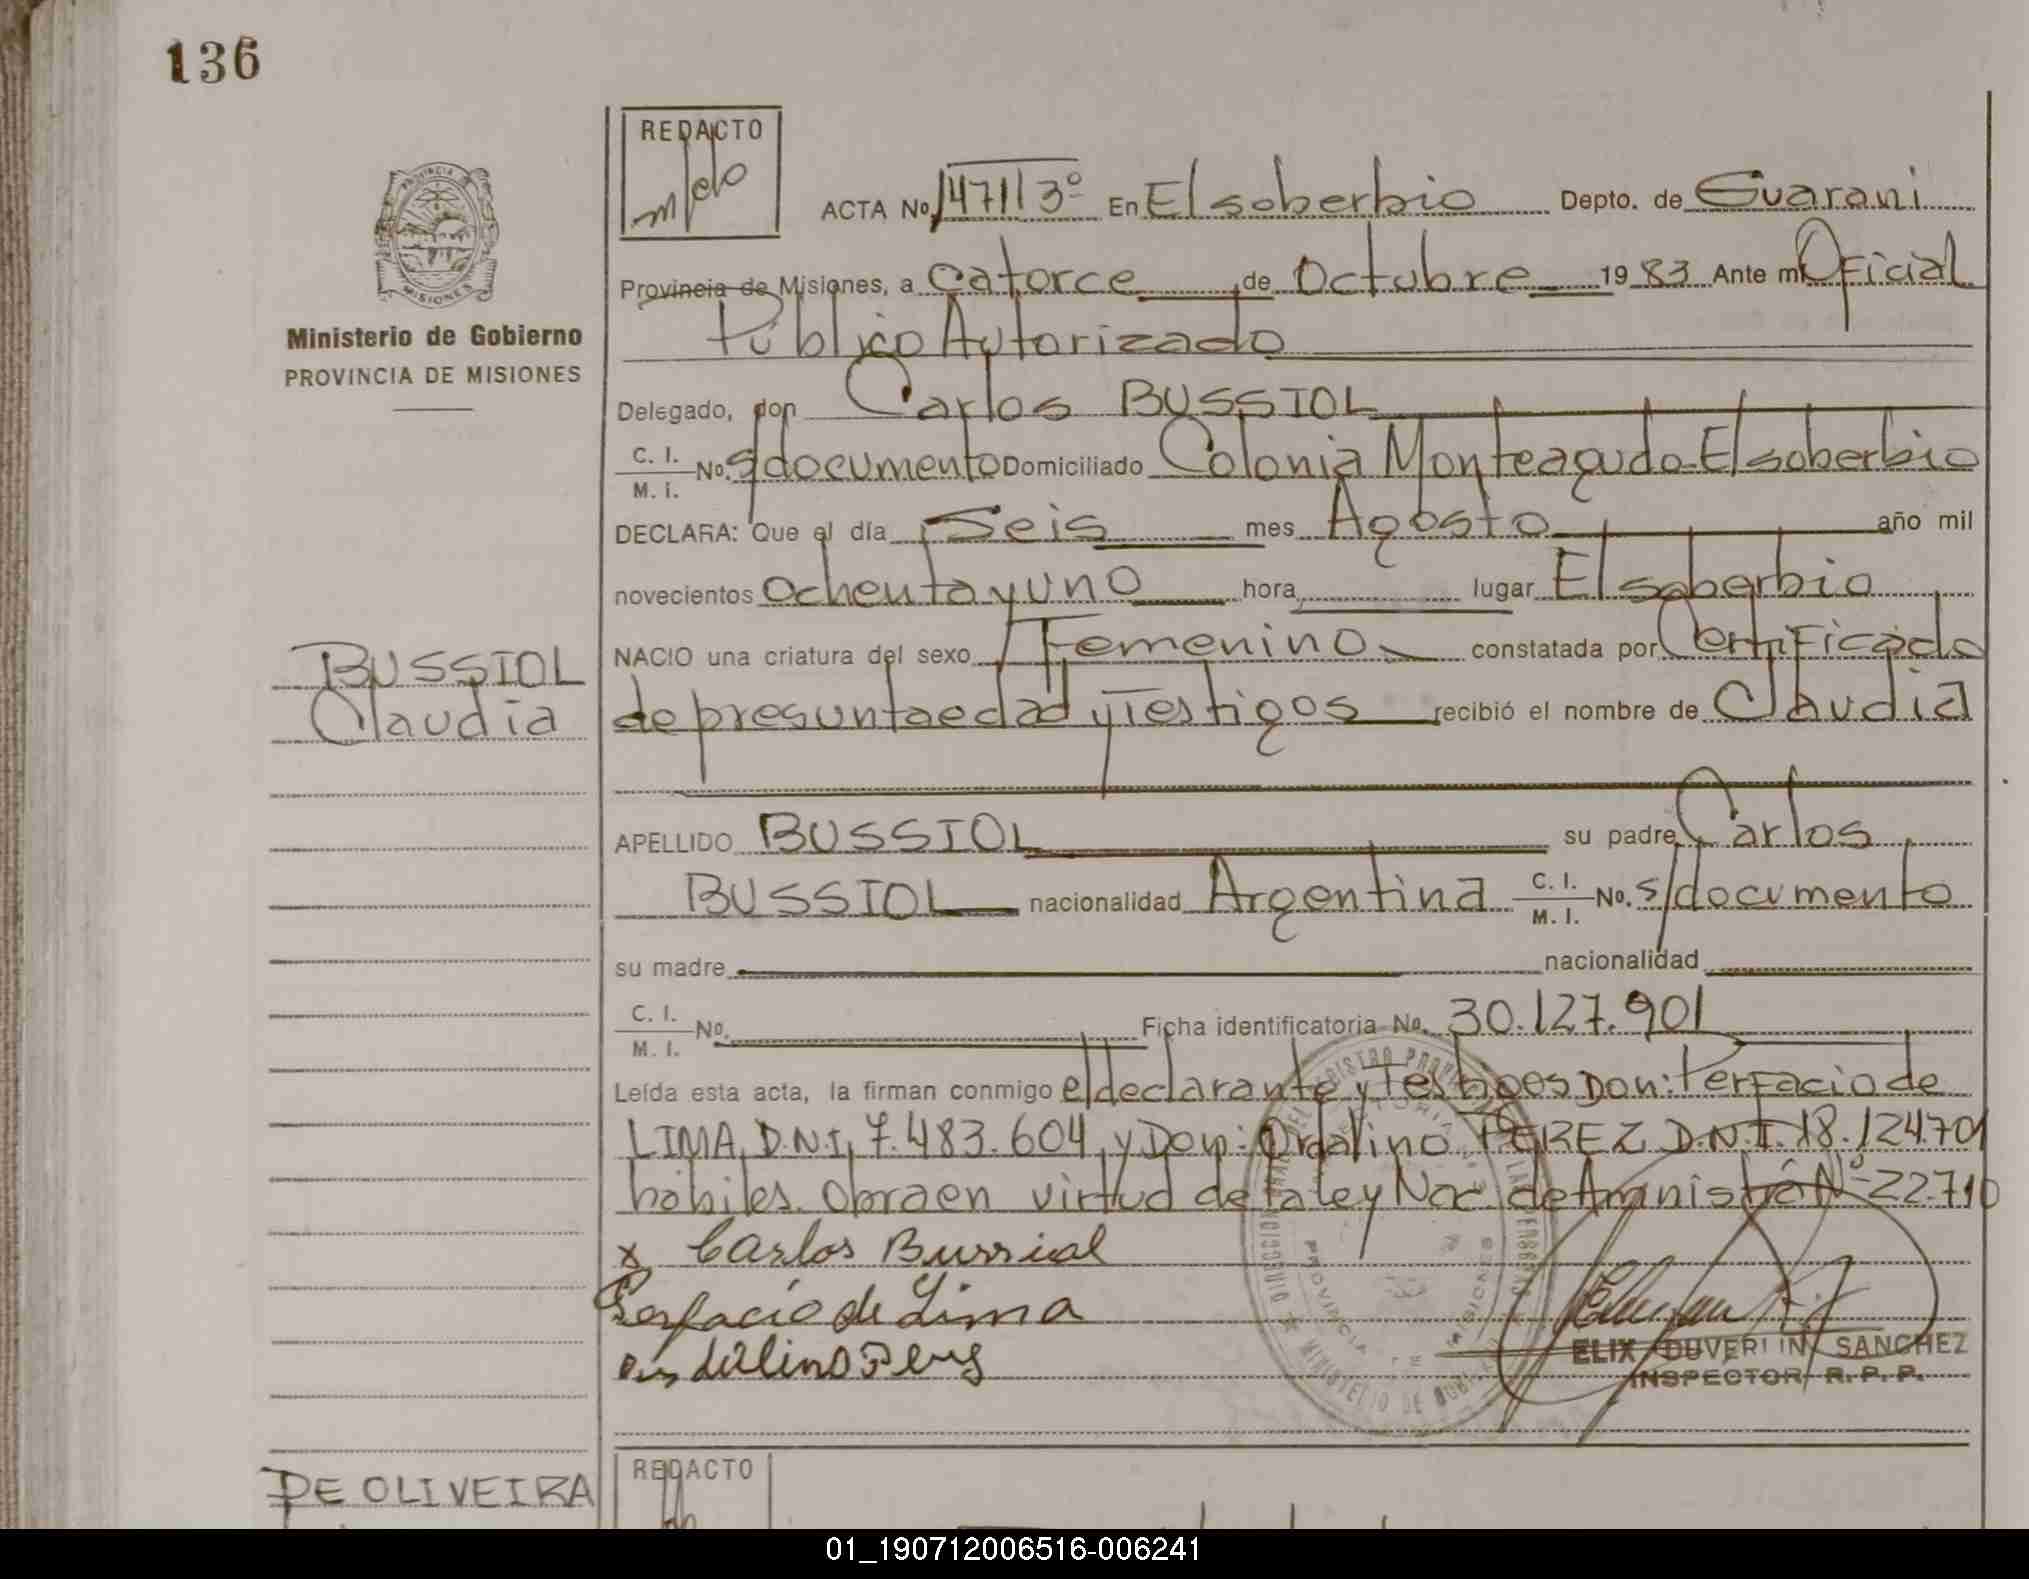 136
REDACTO
ACTA No. 1471 T 3º En El soberbio Depto. de Guarani
Provincia de Misiones, a catorce de Octubre 1983 Ante mi Oficial
Público Autorizado
PROVINCIA
MISIONES
Ministerio de Gobierno
PROVINCIA DE MISIONES
Delegado, don Carlos BUSSIOL
C. I. / M. I. No. s/documento Domiciliado Colonia Monteagudo El soberbio
DECLARA: Que el día Seis mes Agosto año mil
novecientos ochenta y uno hora lugar El soberbio
NACIO una criatura del sexo Femenino constatada por Certificado
de presunta edad y Testigos recibió el nombre de Claudia
BUSSIOL
Claudia
APELLIDO BUSSIOL su padre Carlos
BUSSIOL nacionalidad Argentina C. I. / M. I. No. s/documento
su madre nacionalidad
C. I. / M. I. No. Ficha identificatoria No. 30.127.901
Leída esta acta, la firman conmigo el declarante y Testigos Don: Perfacio de
LIMA, D.N.I, 7.483.604, y Don: Ordalino PEREZ D.N.I. 18.124.701
habiles. Obra en virtud de la ley Nac. de Aministía Nº 22.710
x Carlos Bussiol
Perfacio de Lima
PROVINCIA DE MISIONES
MINISTERIO DE
ELIX DUVERLIN SANCHEZ
INSPECTOR R. P. P.
DE OLIVEIRA
REDACTO
01_190712006516-006241